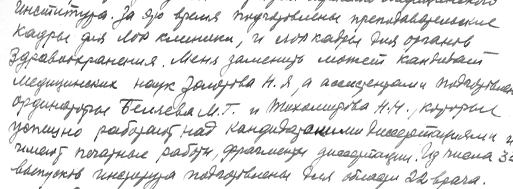 института. За это время подготовлены преподавательские
кадры для лор клиники, и лор кадры для органов
Здравоохранения. Меня заменить может кандидат
медицинских наук Золотова Н.Я, а ассистентами подготовлены
ординаторы Беляева М.Г. и Тихомирова Н.Н., которые
успешно работают над кандидатскими диссертациями и
имеют печатные работы, фрагменты диссертации. Из числа
выпусков института подготовлены для области 22 врача.